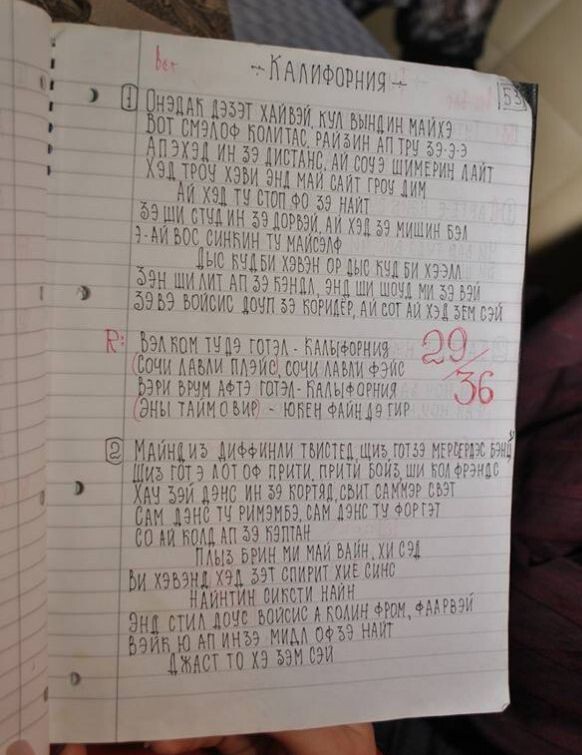 ÷ КАЛИФОРНИЯ ÷
53
1 ОНЭДАК ДЭЗЭТ ХАЙВЭЙ, КУЛ ВЫНДИН МАЙХЭ
ВОТ СМЭЛОФ КОЛИТАС, РАЙЗИН АП ТРУ ЗЭ-Э-Э
АПЭХЭД ИН ЗЭ ДИСТАНС, АЙ СОУЭ ШИМЕРИН ЛАЙТ
ХЭД ТРОУ ХЭВИ ЭНД МАЙ САЙТ ГРОУ ДИМ
АЙ ХЭД ТУ СТОП ФО ЗЭ НАЙТ
ЗЭ ШИ СТУД ИН ЗЭ ДОРВЭЙ, АЙ ХЭД ЗЭ МИШИН БЭЛ
Э-АЙ ВОС СИНКИН ТУ МАЙСЭЛФ
ДЫС КУД БИ ХЭВЭН ОР ДЫС КУД БИ ХЭЭЛЛ
ЗЭН ШИ ЛИТ АП ЗЭ КЭНДЛ, ЭНД ШИ ШОУД МИ ЗЭ ВЭЙ
ЗЭ ВЭ ВОЙСИС ДОУП ЗЭ КОРИДЕР, АЙ СОТ АЙ ХЭД ЗЕМ СЭЙ
R: ВЭЛКОМ ТУ ДЭ ГОТЭЛ - КАЛЫФОРНИЯ
(СОЧИ ЛАВЛИ ПЛЭЙС), СОЧИ ЛАВЛИ ФЭЙС
ВЭРИ ВРУМ АФТЭ ГОТЕЛ - КАЛЫФОРНИЯ
(ЭНЫ ТАЙМ О ВИР) - ЮКЕН ФАЙН ДЭ ГИР
29/36
2 МАЙНД ИЗ ДИФФИНЛИ ТВИСТЕД, ШИЗ ГОТ ЗЭ МЕРСЕРДЭС БЭНЦ
ШИЗ ГОТ Э ЛОТ ОФ ПРИТИ, ПРИТИ БОЙЗ, ШИ КОЛ ФРЭНДС
ХАУ ЗЭЙ ДЭНС ИН ЗЭ КОРТЯД, СВИТ САММЭР СВЭТ
САМ ДЭНС ТУ РИМЭМБЭ, САМ ДЭНС ТУ ФОРГЭТ
СО АЙ КОЛД АП ЗЭ КЭПТАН
ПЛЫЗ БРИН МИ МАЙ ВАЙН, ХИ СЭД
ВИ ХЭВЭНД ХЭД ЗЭТ СПИРИТ ХИЕ СИНС
НАЙНТИН СИКСТИ НАЙН
ЭНД СТИЛ ДОУС ВОЙСИС А КОЛИН ФРОМ, ФААРВЭЙ
ВЭЙК Ю АП ИН ЗЭ МИДЛ ОФ ЗЭ НАЙТ
ДЖАСТ ТО ХЭ ЗЭМ СЭЙ